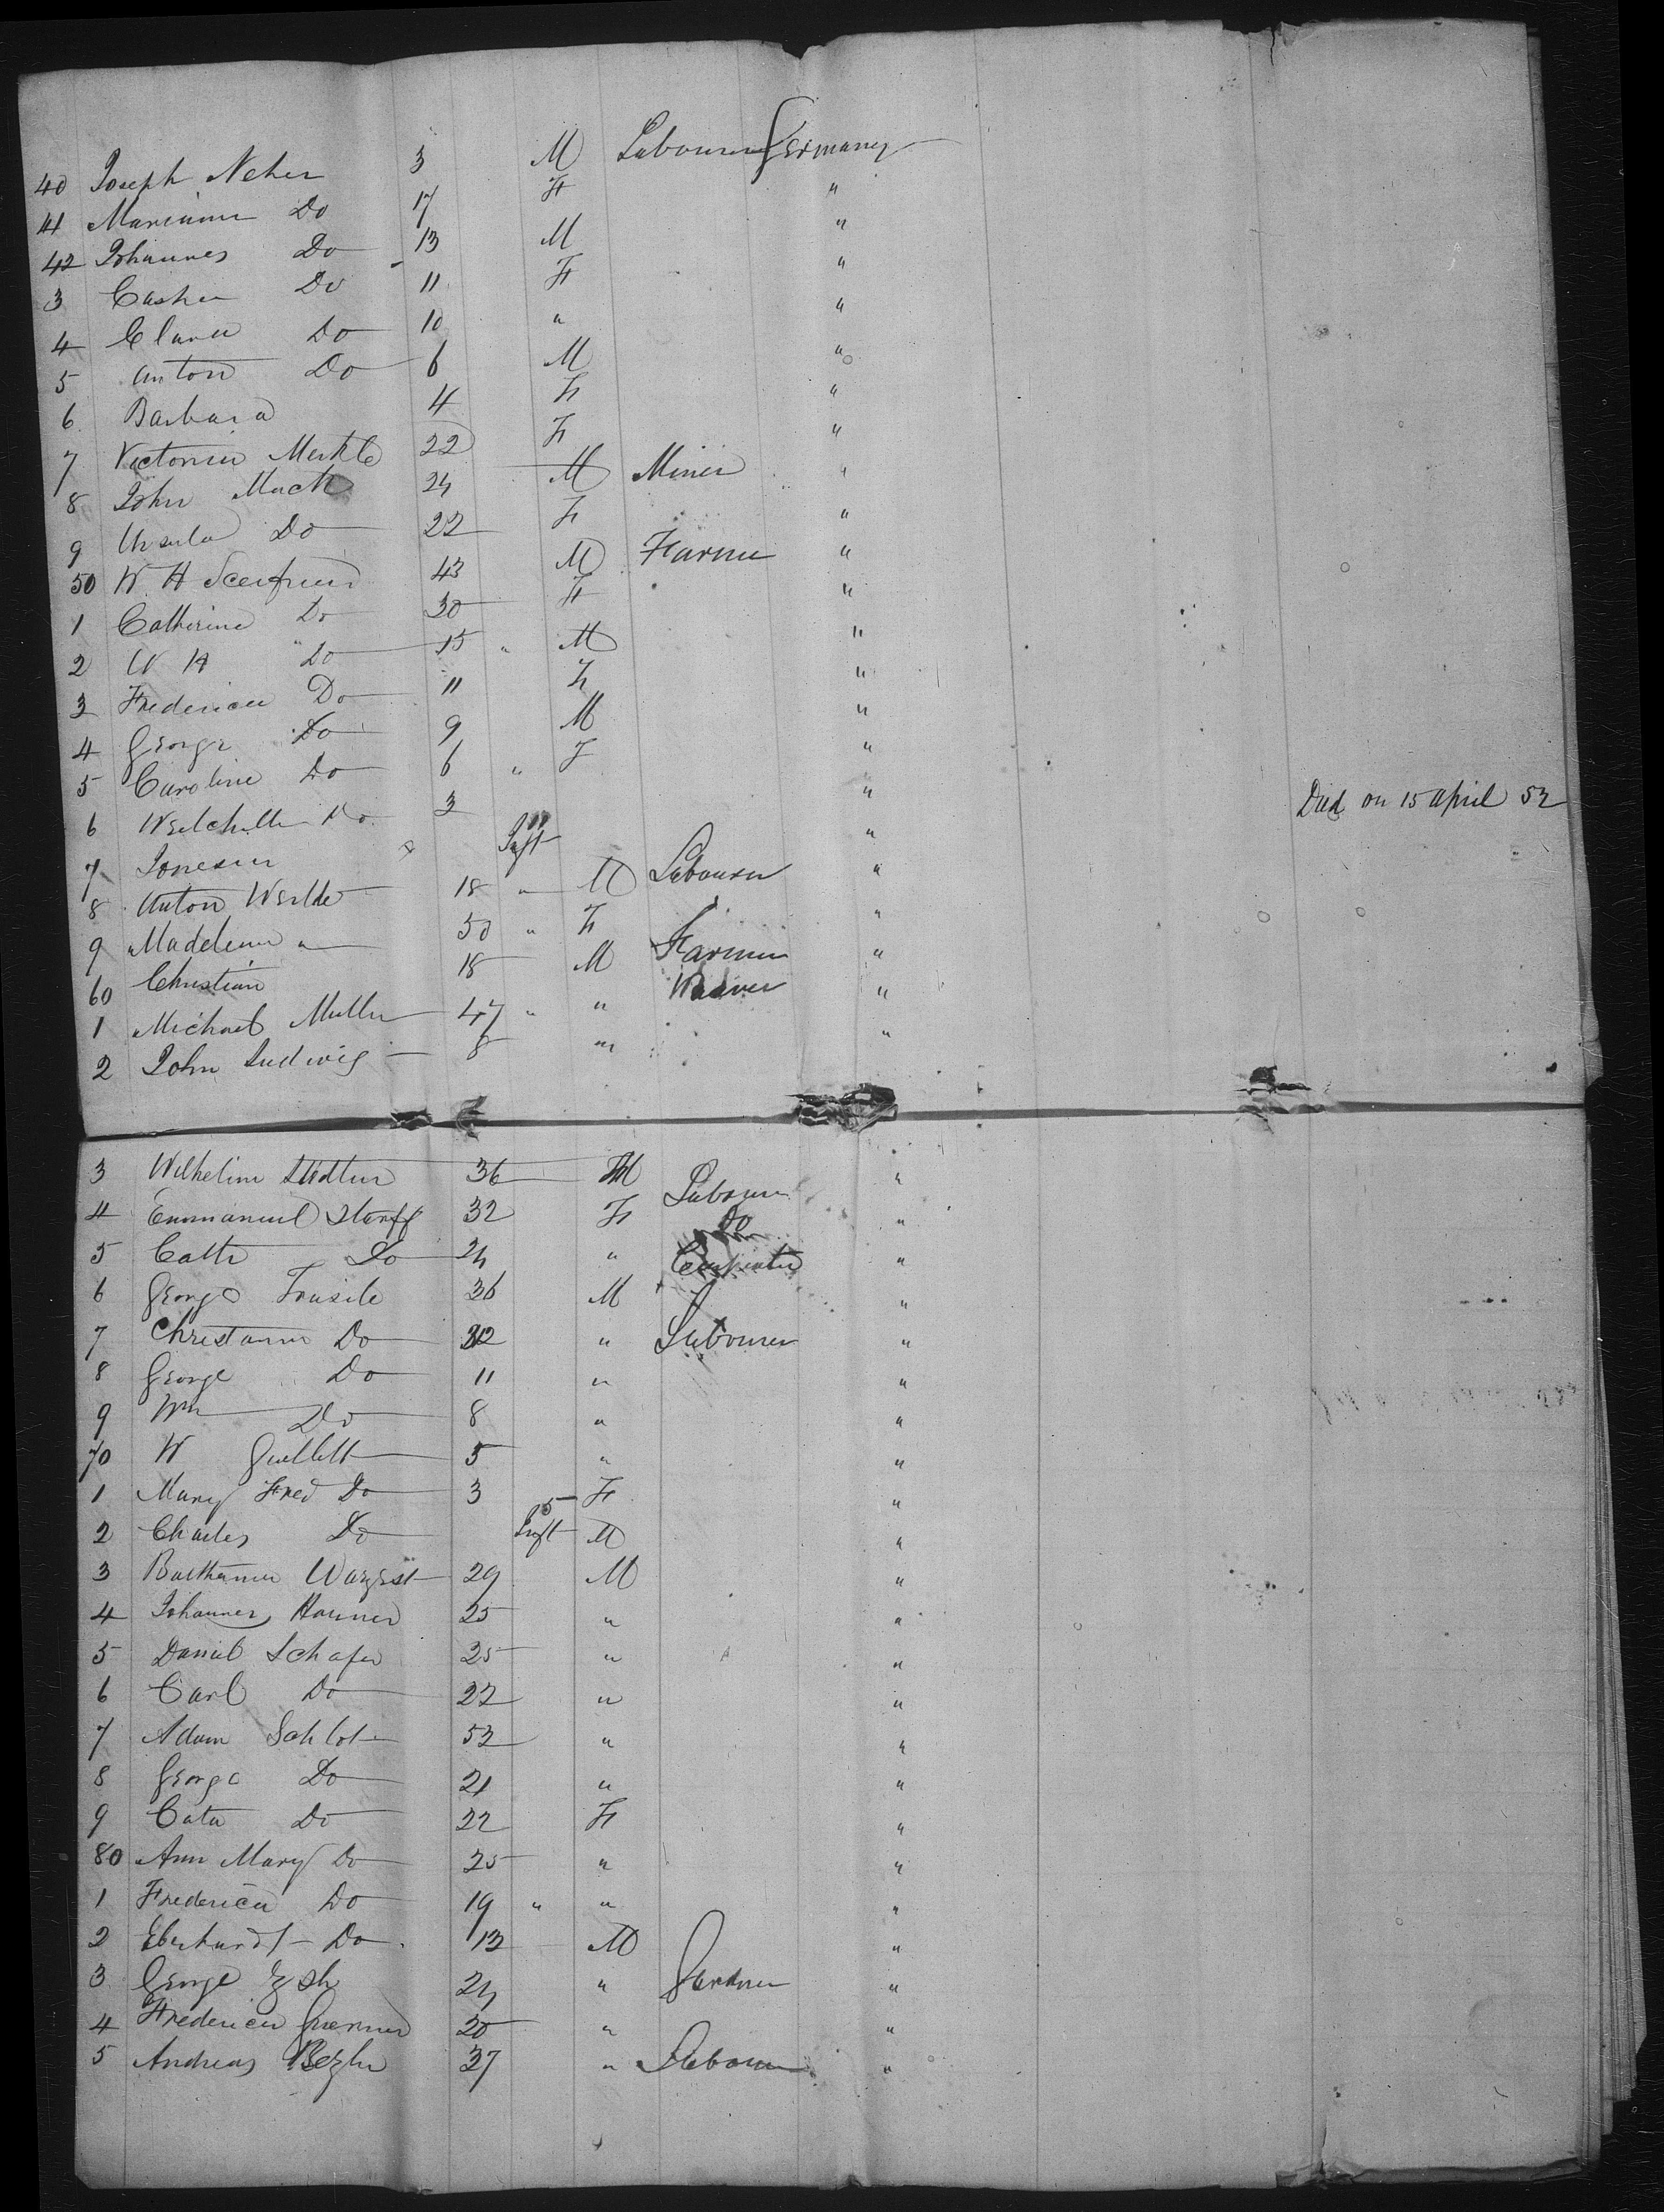 40 Joseph Neher 3 M Labourer Germany
41 Marianne Do 17 F "
42 Johannes Do 13 M "
3 Do 11 F "
4 Clara Do 10 " "
5 Anton Do 6 M "
6 Barbara 4 F "
7 Victoria Merkle 22 F "
8 John Mack 24 M Miner "
9 Ursula Do 22 F "
50 W. H 43 M Farmer "
1 Catherine Do 30 F "
2 W H Do 15 " M "
3 Frederica Do 11 F "
4 George Do 9 M "
5 Caroline Do 6 " F "
6 Do 3 " Died on 15 April 52
7 Inft "
8 Anton 18 " M Labourer "
9 Madelena " 50 " F "
60 Christian 18 M Farmer "
1 Michael Muller 47 " " Weaver "
2 John Ludwig 8 " "
3 Wilhelm 36 M Labourer "
4 Emmanuel Storff 32 F Do "
5 Cath Do 24 " Carpenter "
6 George 36 M "
7 Do " Labourer "
8 George Do 11 " "
9 Wm Do 8 " "
70 W 5 " "
1 Mary Fred Do 3 F "
2 Charles Do 5 Inft M "
3 29 M "
4 Johannes 25 " "
5 Daniel Schafer 25 " "
6 Carl Do 22 " "
7 Adam 52 " "
8 George Do 21 " "
9 Do 22 F "
80 Ann Mary Do 25 " "
1 Frederica Do 19 " " "
2 Eberhardt Do 13 M "
3 George 24 " Gardner "
4 Frederica 20 " "
5 Andreas 37 " Labourer "